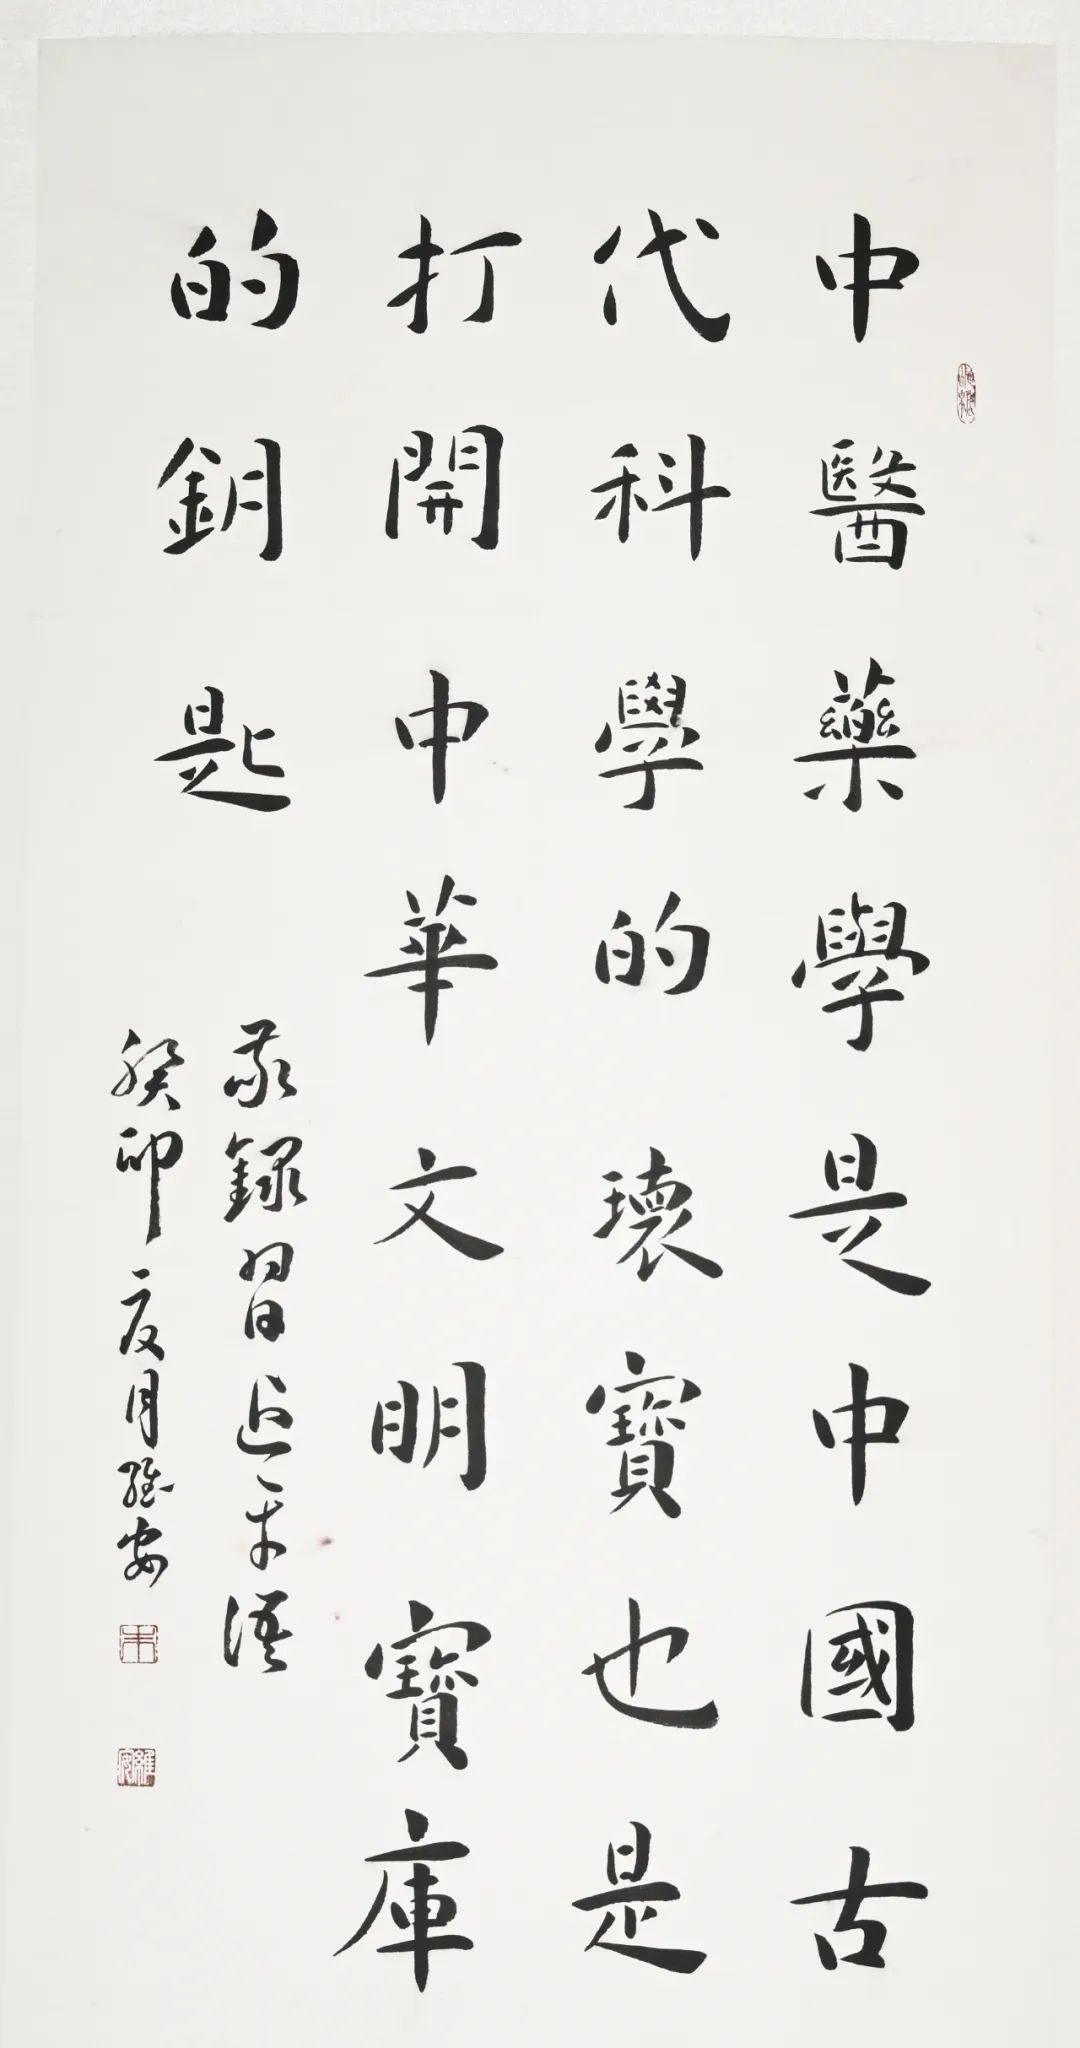 中醫藥學是中國古
代科學的瓌寶也是
打開中華文明寶庫
的鈅匙
敬錄習近平語
癸卯夏月維安
朱
維安